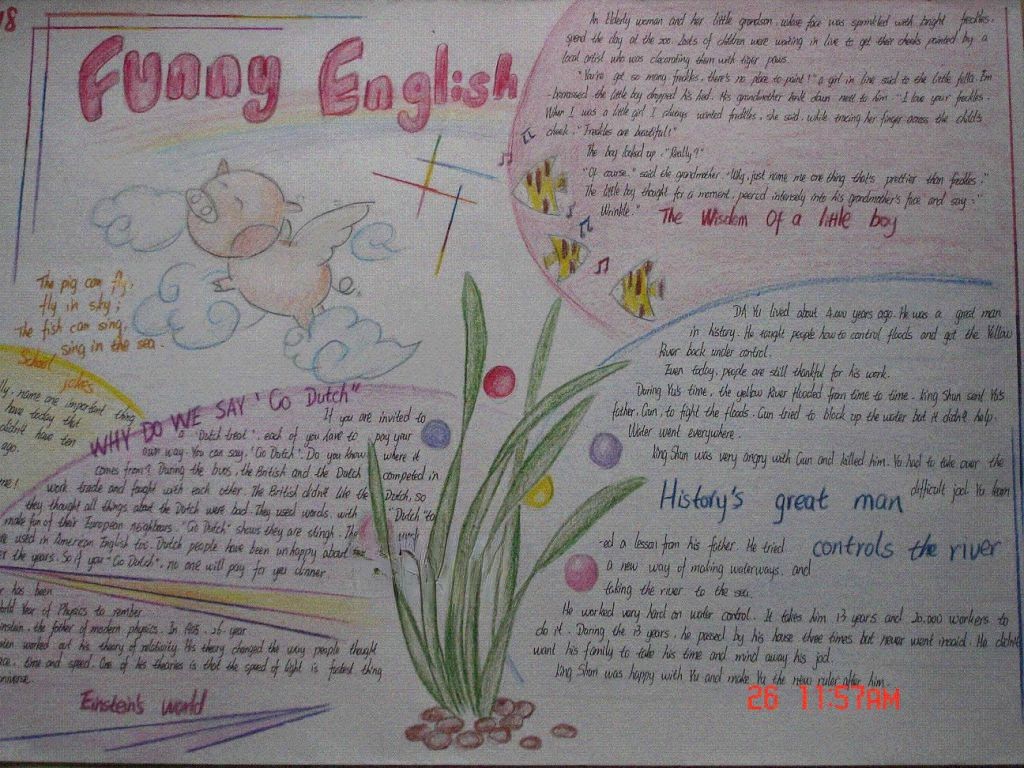 18
Funny English
An Elderly woman and her little grandson, whose face was sprinkled with bright freckles,
spend the day at the zoo. Lots of children were waiting in line to get their cheeks painted by a
local artist who was decorating them with tiger paws.
"You're got so many freckles, there's no place to paint!" a girl in line said to the little fella. Em
-barrassed the little boy dropped his head. His grandmother knelt down next to him. "I love your freckles.
When I was a little girl I always wanted freckles, she said, while tracing her finger across the child's
cheek. "Freckles are beautiful!"
The boy looked up, "Really?"
"Of course," said the grandmother. "Why, just name me one thing that's prettier than freckles."
The little boy thought for a moment, peered intensely into his grandmother's face and say "
Wrinkle."
The Wisdom Of a little boy
The pig can fly,
fly in sky;
The fish can sing,
sing in the sea.
School
jokes
lly, name one important thing
have today that
didn't have ten
ago.
me!
WHY DO WE SAY "Go Dutch"
If you are invited to
a "Dutch treat", each of you have to pay your
own way. You can say, "Go Dutch". Do you know where it
comes from? During the 1600s, the British and the Dutch competed in
work trade and fought with each other. The British didn't like the Dutch, so
they thought all things about the Dutch were bad. They used words, with "Dutch" to
make fun of their European neighbours. "Go Dutch" shows they are stingh. The
re used in American English too. Dutch people have been unhappy about
er the years. So if you "Go Dutch", no one will pay for you dinner
r has been
orld Year of Physics to rember
instein, the father of modern physics. In 1905, 26-year
worked out his theory of relativity. His theory changed the way people thought
time and speed. One of his theories is that the speed of light is fastest thing
universe.
Einstein's world
DA Yu lived about 4,000 years ago. He was a great man
in history. He taught people how to control floods and got the Yellow
River back under control.
Even today, people are still thankful for his work.
During Yu's time, the yellow River flooded from time to time. King Shun sent Yu's
father, Gun, to fight the floods. Gun tried to block up the water but it didn't help.
Water went everywhere.
King Shun was very angry with Gun and killed him. Yu had to take over the
difficult job. Yu learn
History's great man
controls the river
-ed a lesson from his father. He tried
a new way of making waterways, and
taking the river to the sea.
He worked very hard on water control. It takes him 13 years and 20,000 workers to
do it. During the 13 years, he passed by his house three times but never went inside. He didn't
want his family to take his time and mind away his jod.
King Shun was happy with Yu and make Yu the new ruler after him.
26 11:57AM